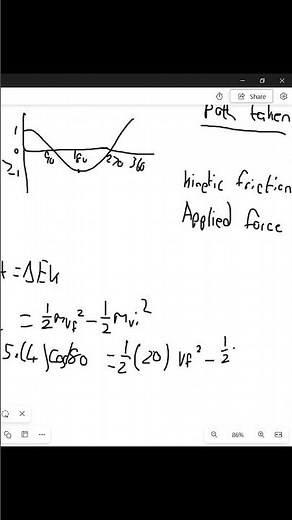 Share
Path taken
1
0
-1
90 180 270 360
kinetic friction
Applied force
= ΔEk
= 1/2 mvf² - 1/2 mvi²
5.(4)cos80 = 1/2 (20) vf² - 1/2
86%